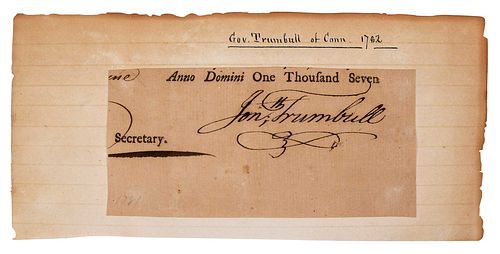 Gov. Trumbull of Conn. 1762
Anno Domini One Thousand Seven
Jon;th Trumbull
Secretary.